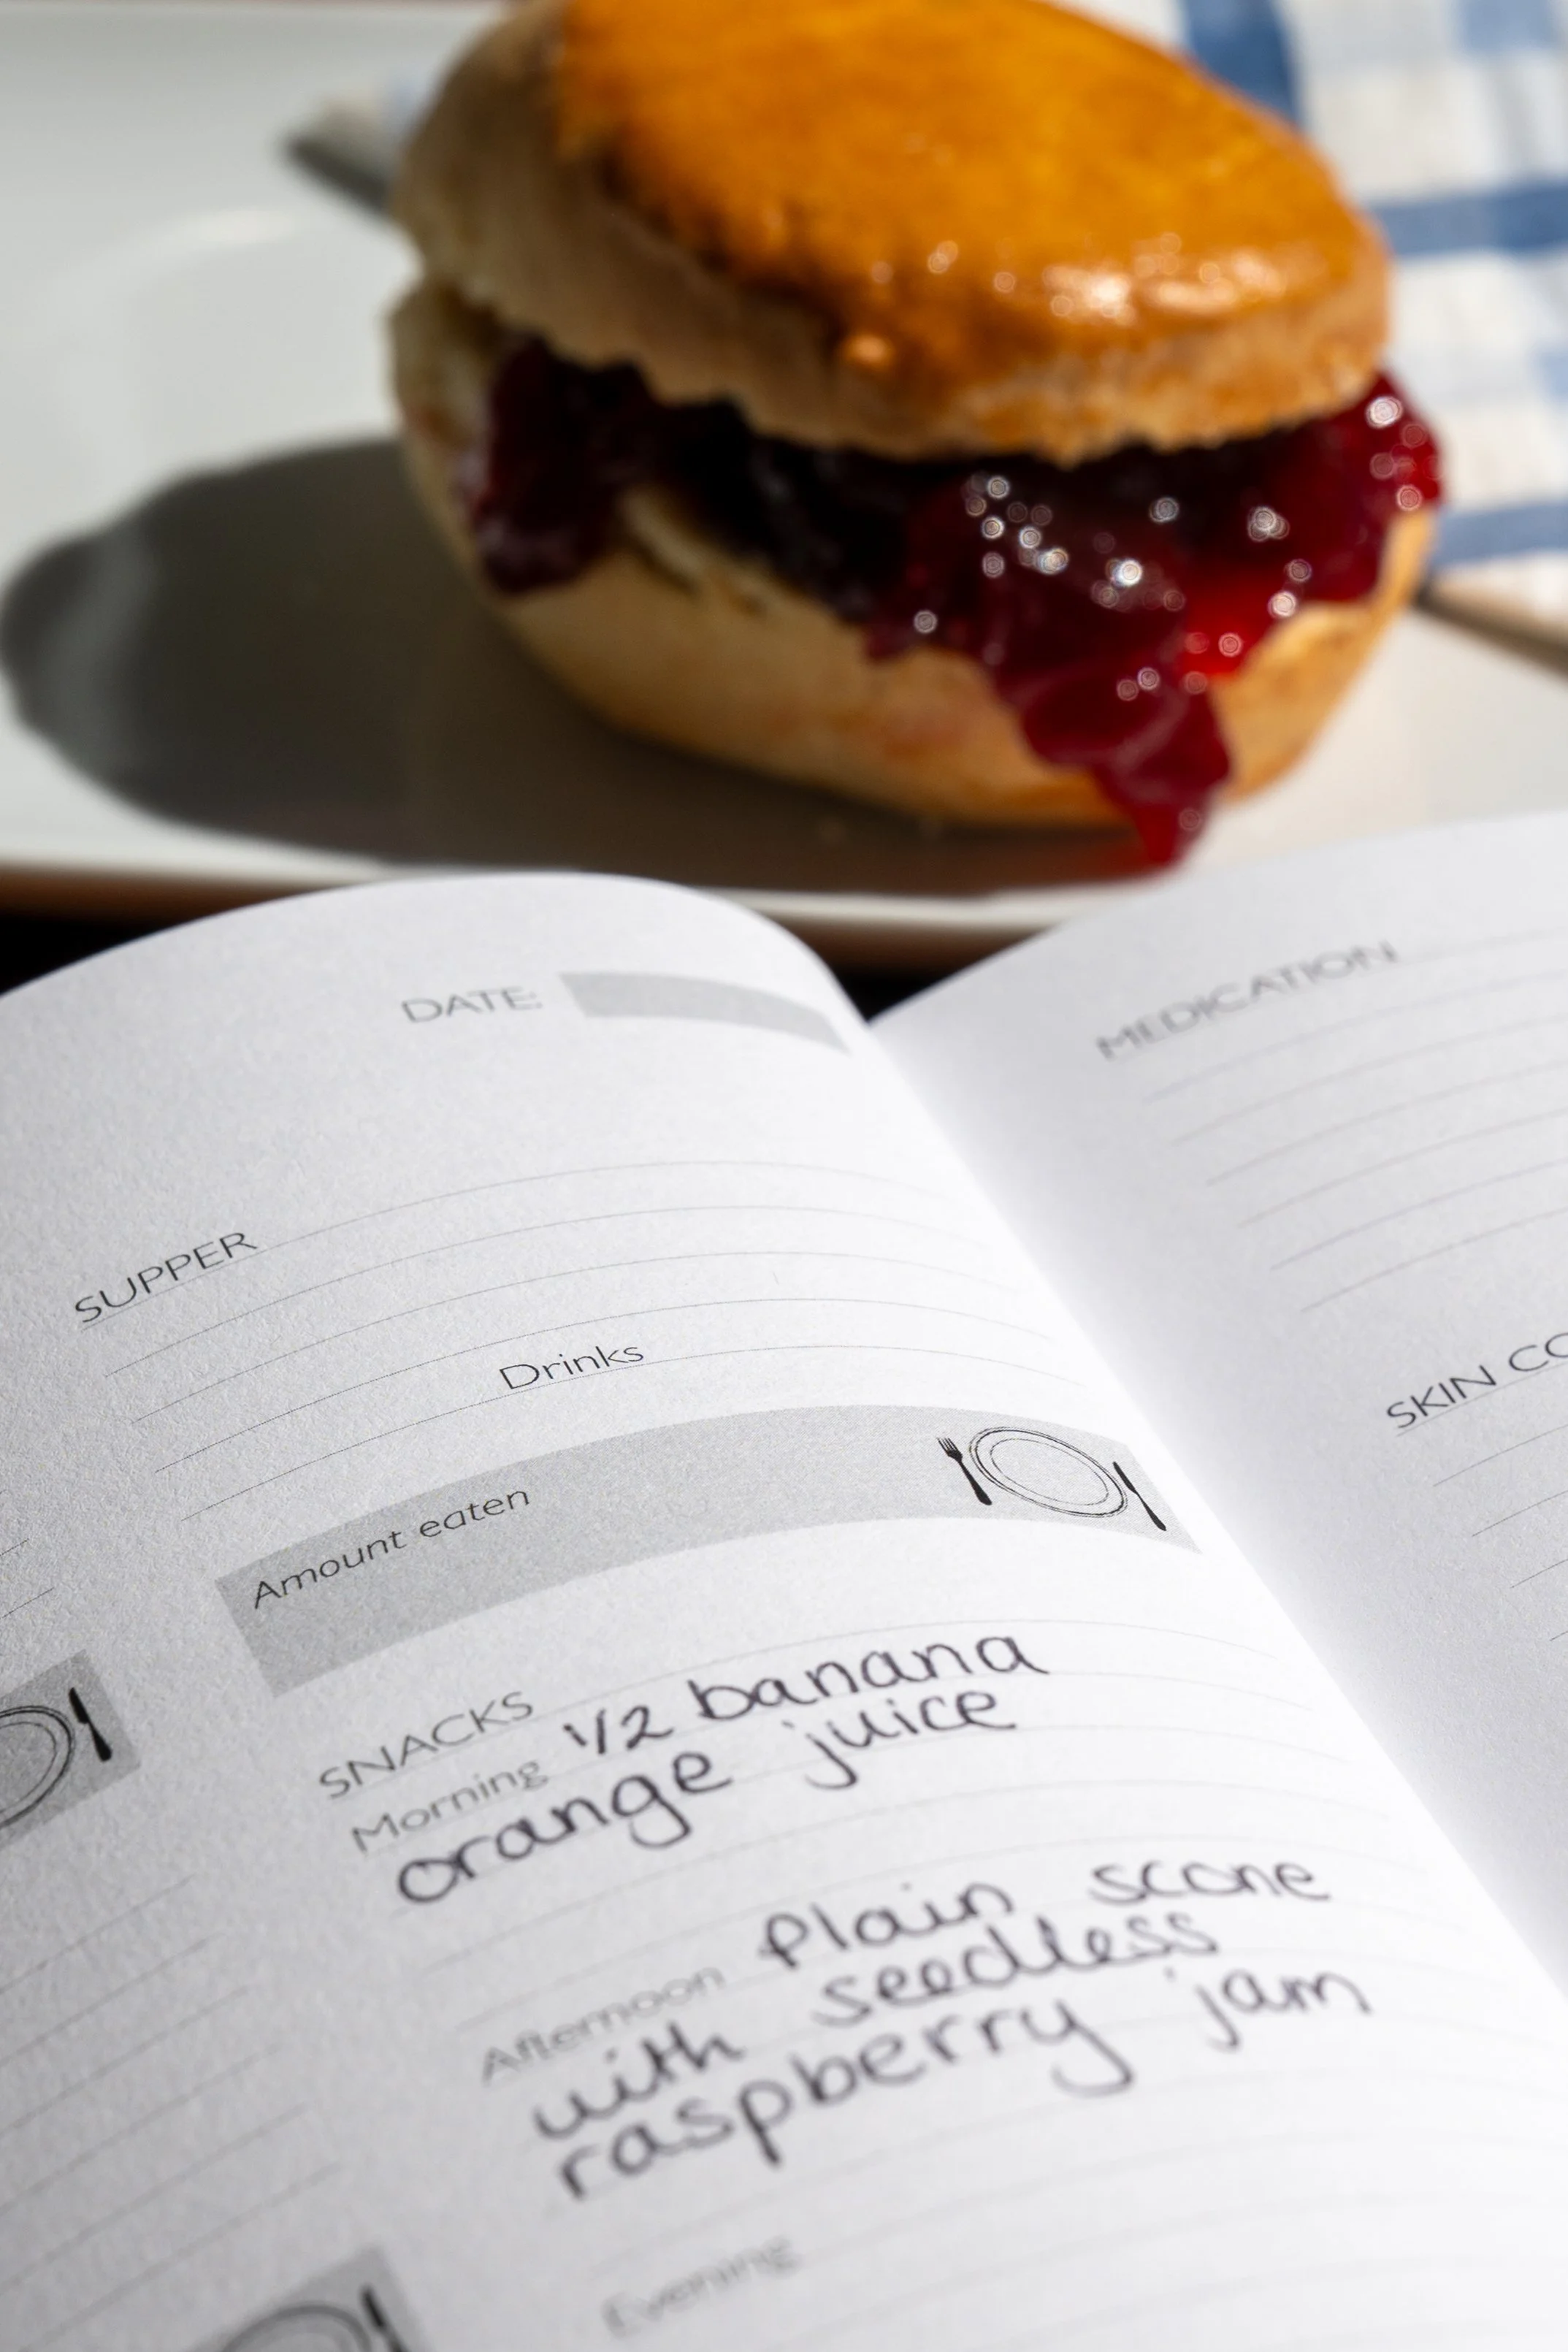 DATE:
SUPPER
Drinks
Amount eaten
SNACKS
Morning 1/2 banana
orange juice
Afternoon Plain scone
with seedless
raspberry jam
Evening
MEDICATION
SKIN CO